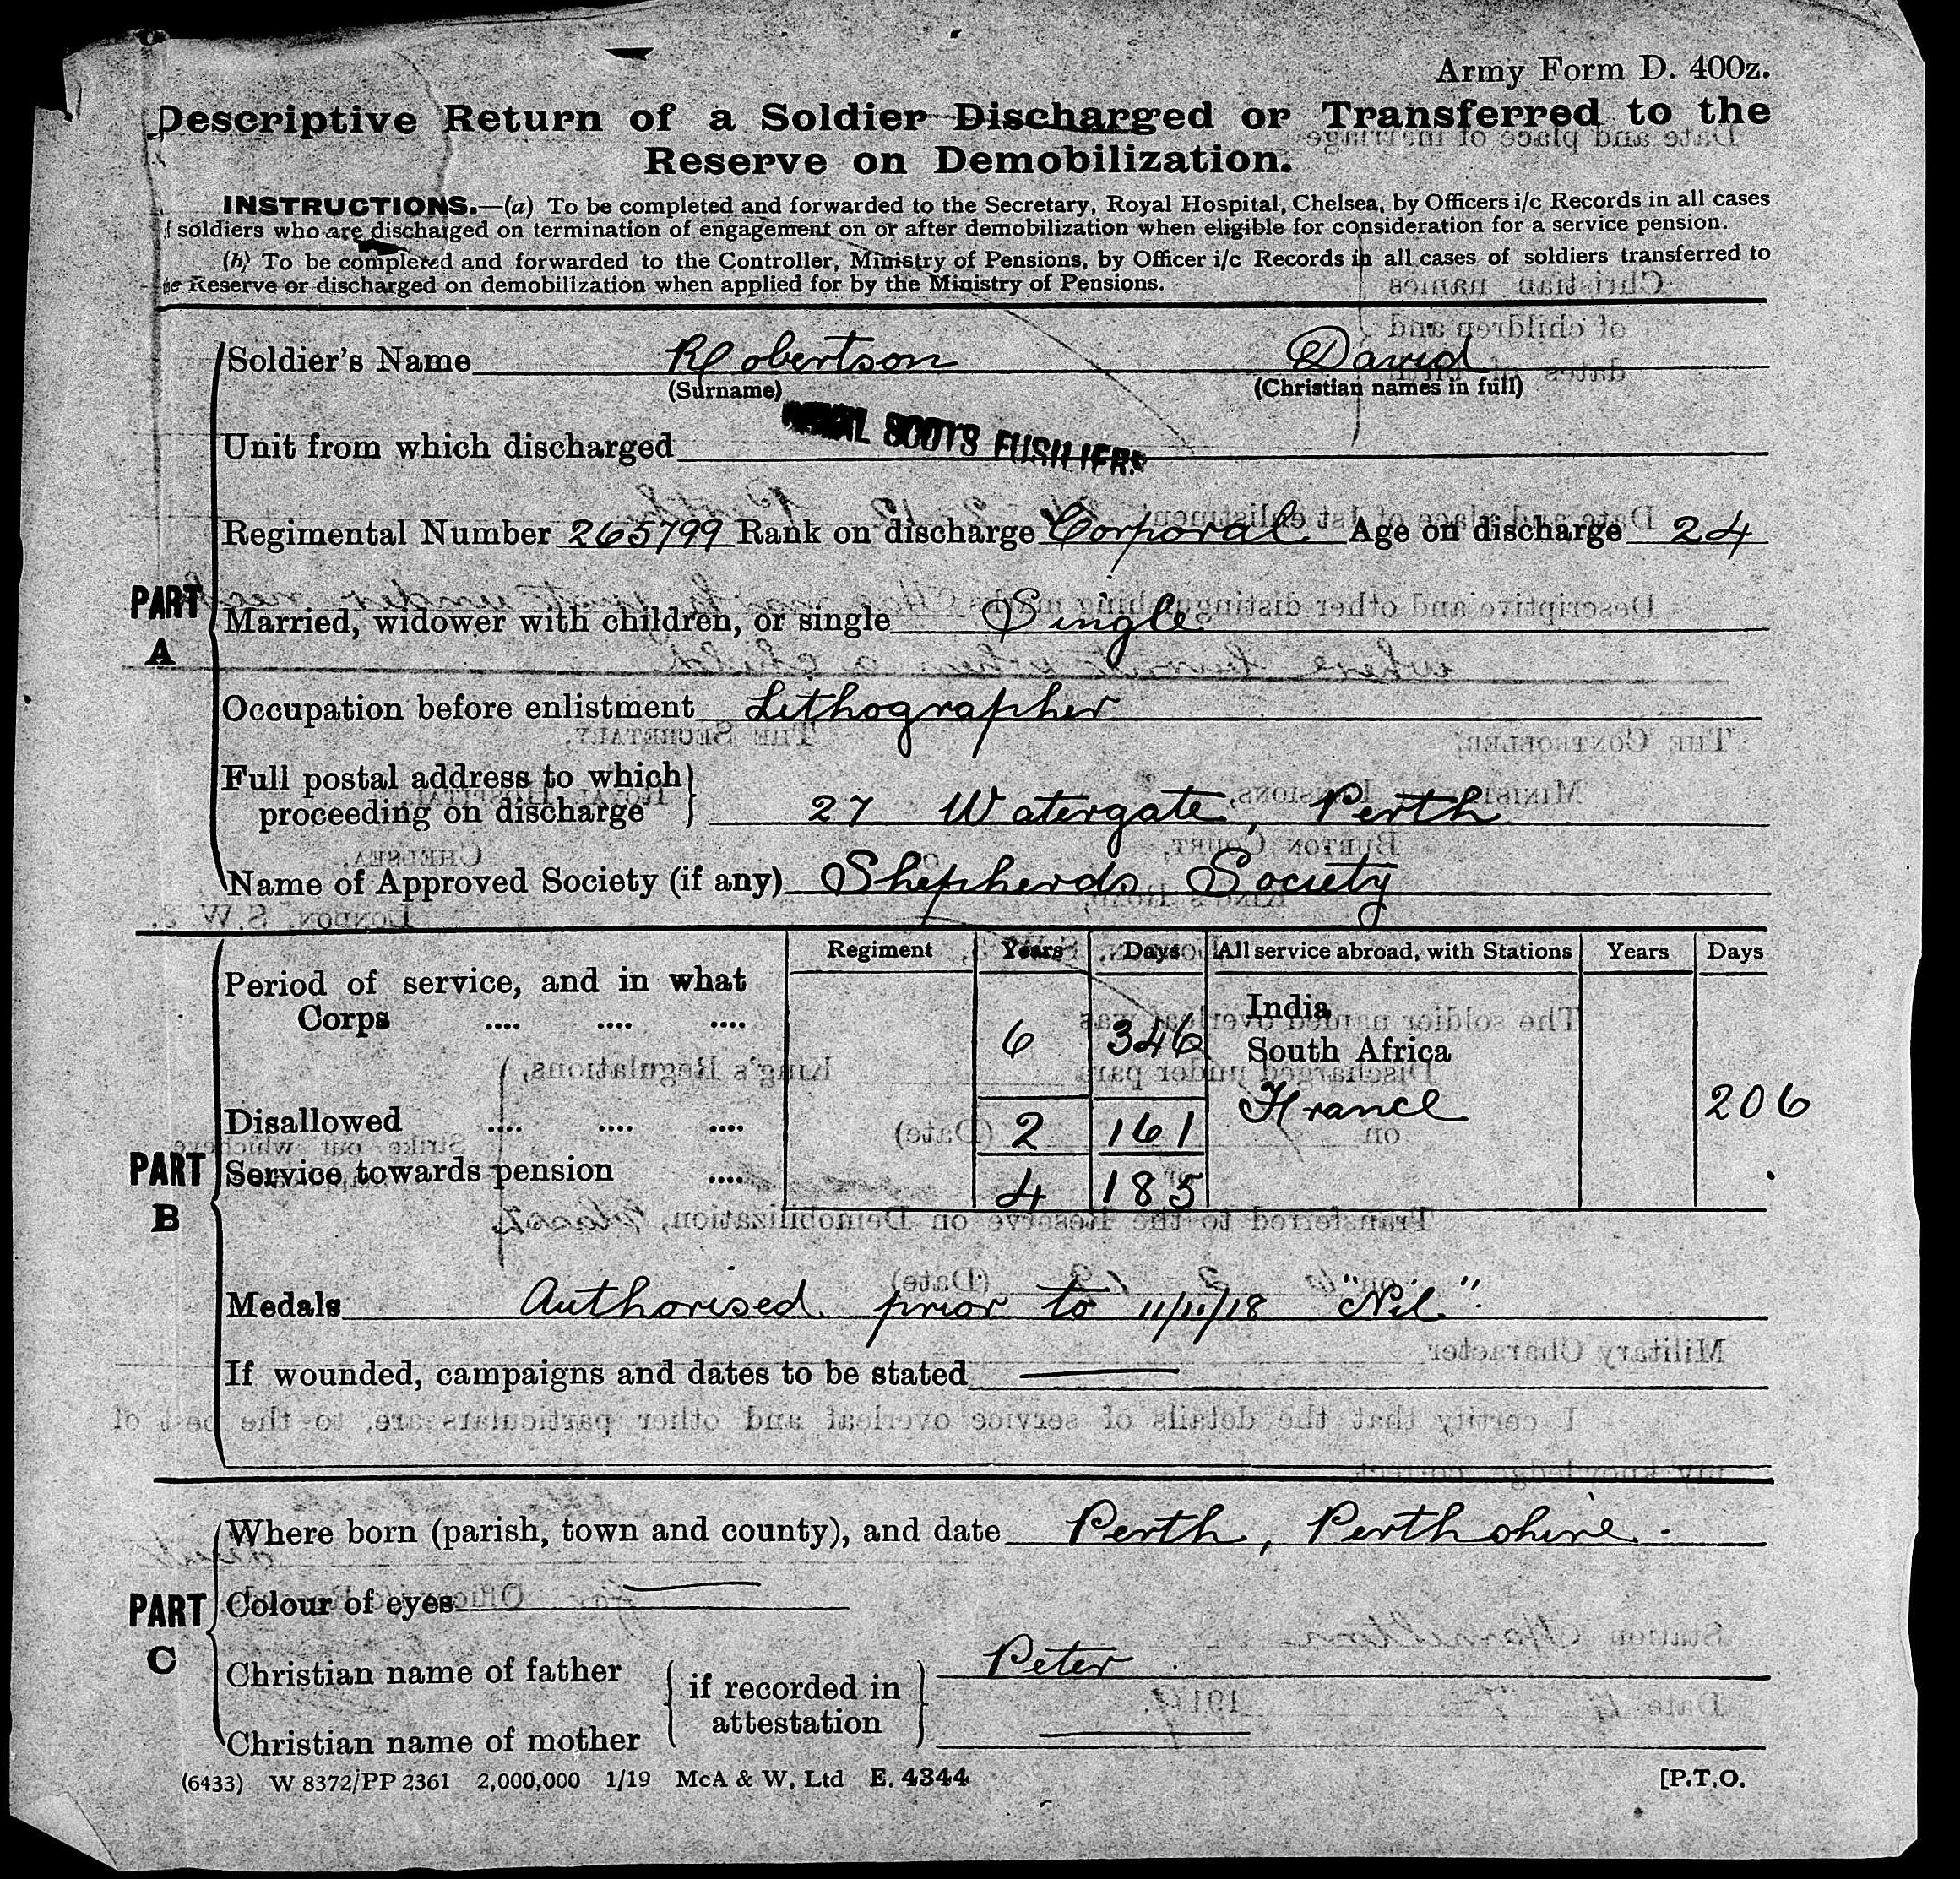 Army Form D. 400z.
Descriptive Return of a Soldier Discharged or Transferred to the
Reserve on Demobilization.
INSTRUCTIONS.—(a) To be completed and forwarded to the Secretary, Royal Hospital, Chelsea, by Officers i/c Records in all cases
f soldiers who are discharged on termination of engagement on or after demobilization when eligible for consideration for a service pension.
(b) To be completed and forwarded to the Controller, Ministry of Pensions, by Officer i/c Records in all cases of soldiers transferred to
he Reserve or discharged on demobilization when applied for by the Ministry of Pensions.
Soldier's Name Robertson David
(Surname) (Christian names in full)
Unit from which discharged ROYAL SCOTS FUSILIERS
Regimental Number 265799 Rank on discharge Corporal Age on discharge 24
PART A
Married, widower with children, or single Single
Occupation before enlistment Lithographer
Full postal address to which
proceeding on discharge } 27 Watergate, Perth
Name of Approved Society (if any) Shepherds Society
Regiment Years Days All service abroad, with Stations Years Days
Period of service, and in what
Corps .... .... .... 6 346 India
South Africa
Disallowed .... .... .... 2 161 France 206
PART B
Service towards pension .... 4 185
Medals Authorised prior to 11/11/18 "Nil".
If wounded, campaigns and dates to be stated —
Where born (parish, town and county), and date Perth, Perthshire.
PART C
Colour of eyes —
Christian name of father { if recorded in attestation } Peter
Christian name of mother —
(6433) W 8372/PP 2361 2,000,000 1/19 McA & W, Ltd E. 4344 [P.T.O.